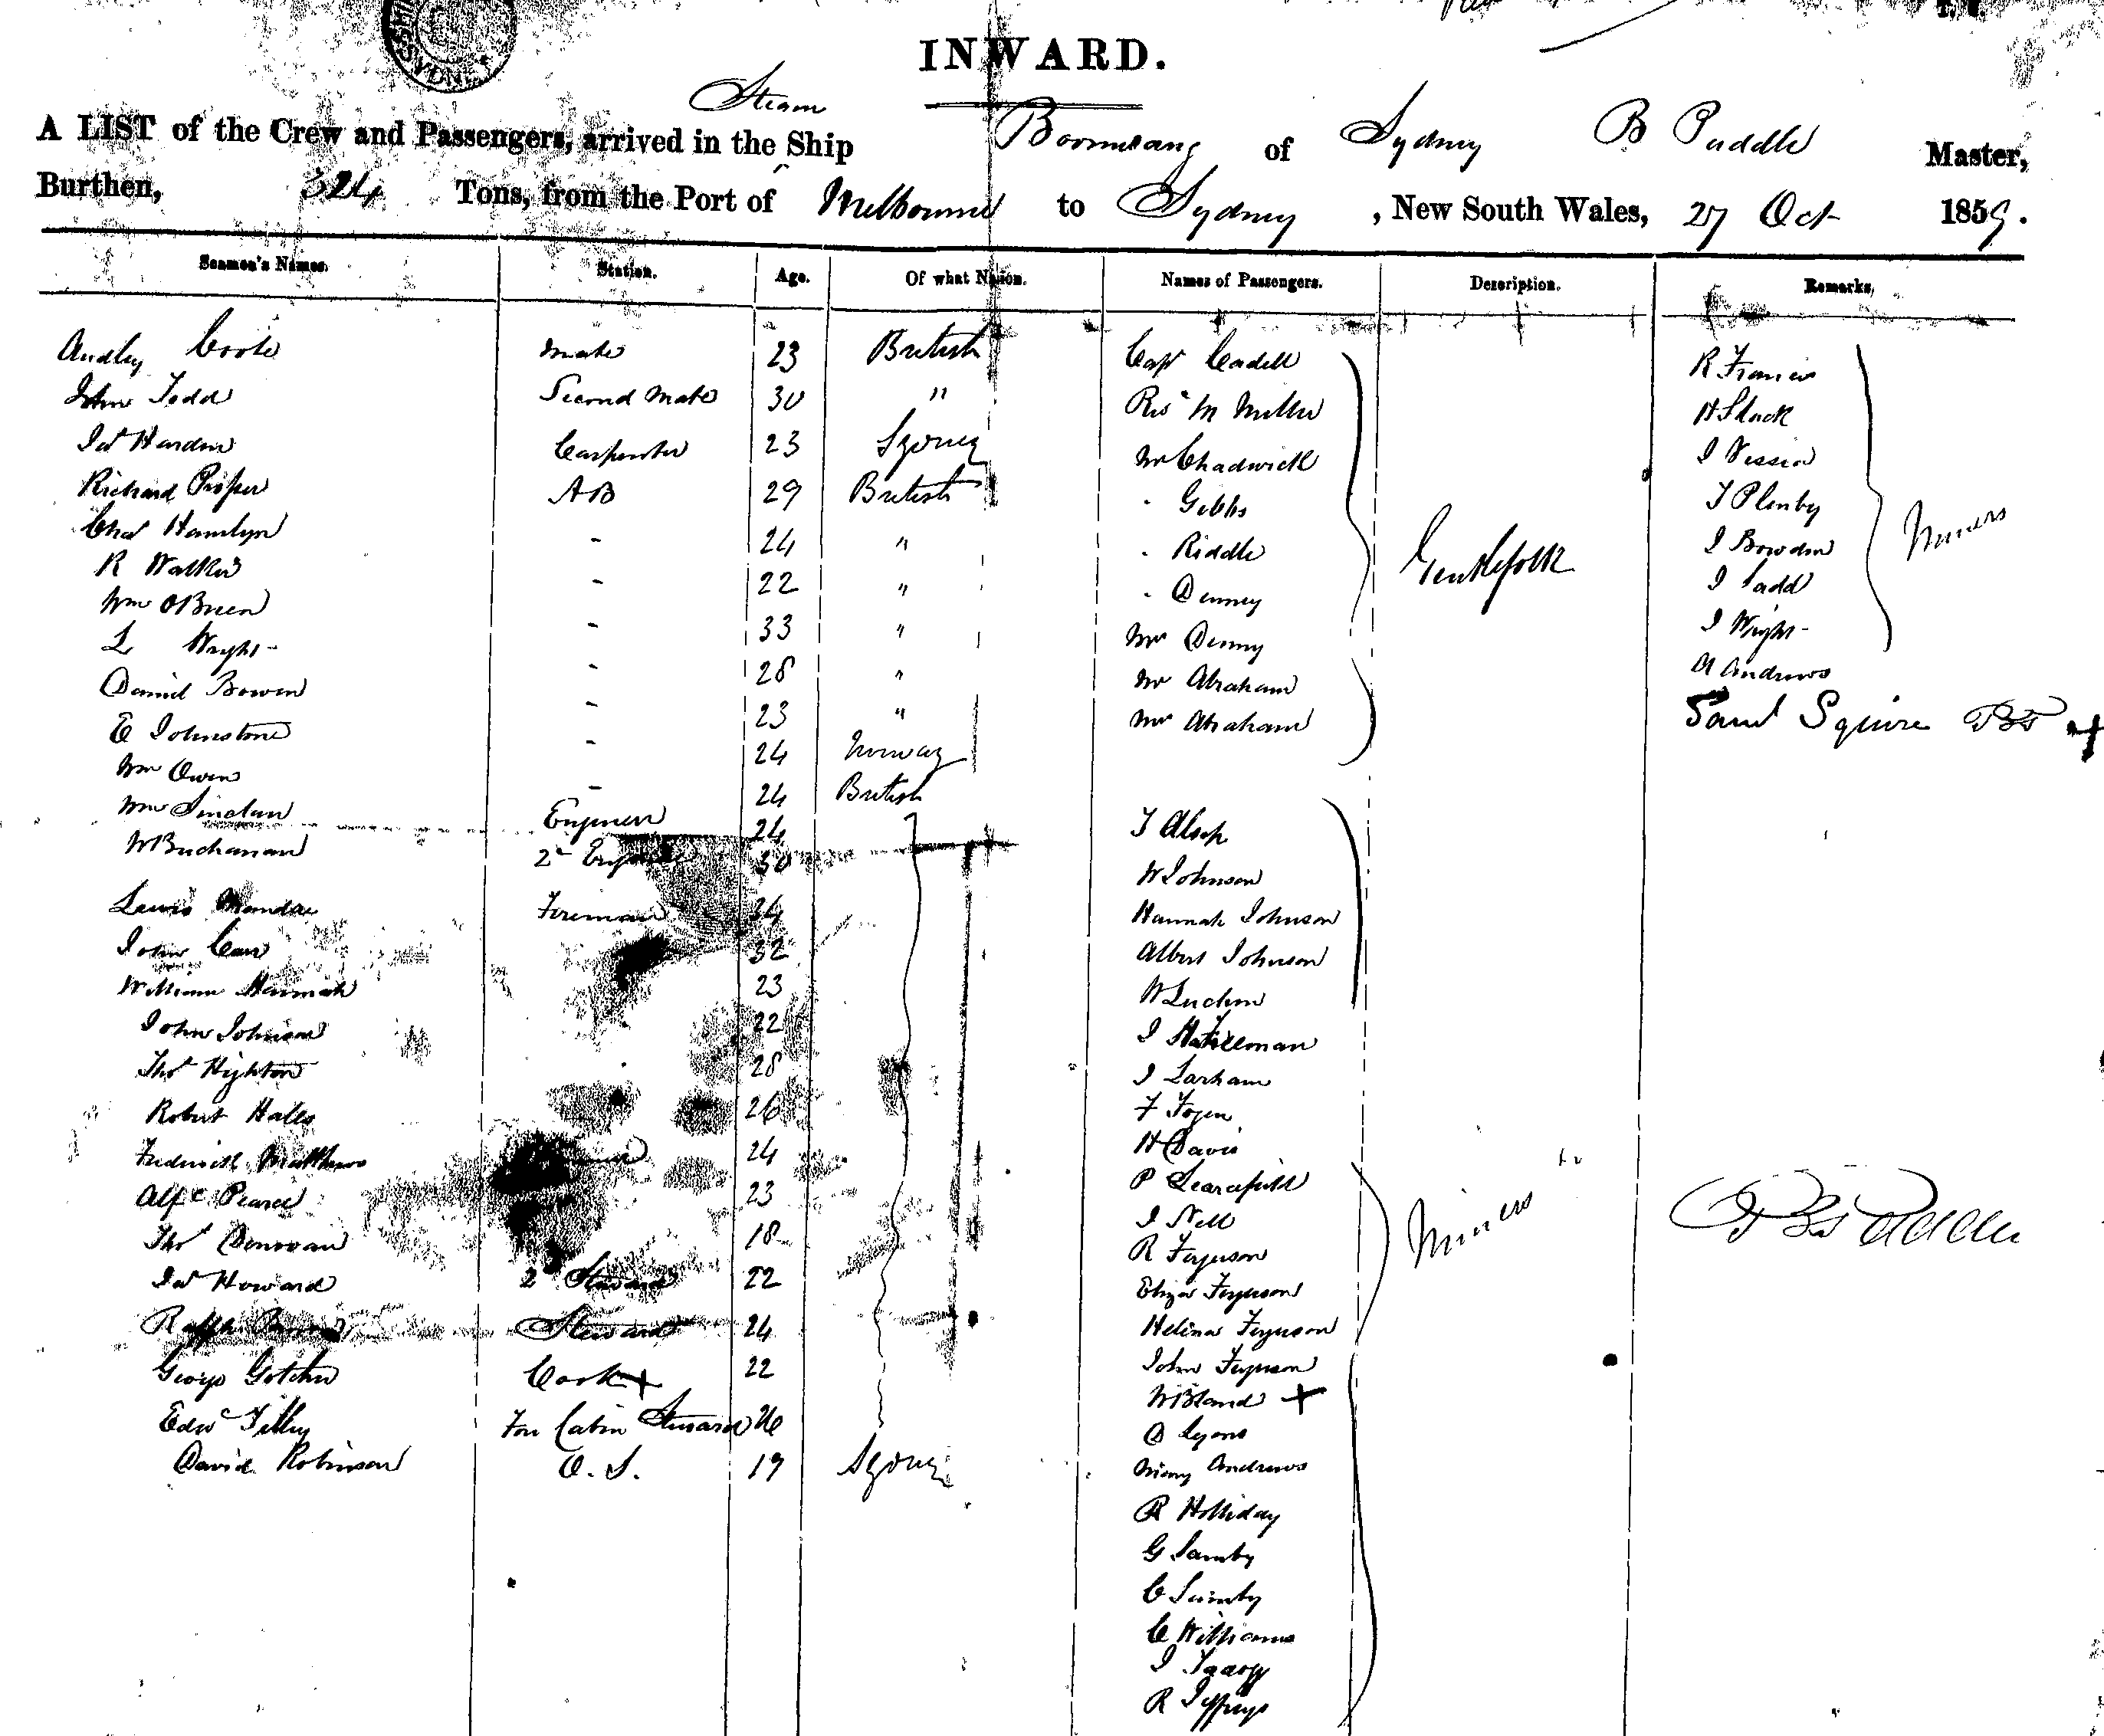 INWARD.
A LIST of the Crew and Passengers, arrived in the Steam Ship Boomerang of Sydney B Paddle Master,
Burthen, 324 Tons, from the Port of Melbourne to Sydney , New South Wales, 27 Oct 1859.
Seamen's Names. Station. Age. Of what Nation. Names of Passengers. Description. Remarks.
Audley Coote Mate 23 British Capt Cadell R Francis
John Todd Second Mate 30 " M Miller H Slack
Jas Harden Carpenter 23 Sydney Mr Chadwick J
Richard Prosser AB 29 British " Gibbs J Plenby
Chas Hamlyn - 24 " " Riddle J Bowden
R Walker - 22 " " Denney Gentlefolk J Ladd Miners
Wm OBrien - 33 " Mrs Denny J Wright
L Wright - 28 " Mr Abraham A Andrews
Daniel Bowen - 23 " Mrs Abraham Saml Squire
E Johnstone - 24 Norway
Wm Owen - 24 British
Wm Sinclair Engineer 24 J Alsop
W Buchanan 2d Engineer 30 W Johnson
Lewis Fireman 34 Hannah Johnson
John Carr 32 Albert Johnson
William Hannah 23 W
John Johnson 22 J
Thos Highton 28 J Larham
Robert Halls 26 F
Frederick Matthews 24 H Davis
Alfd Pearce 23 P
Thos Donovan 18 J Nell
Jas Howard 2d Steward 22 R Ferguson Miners
Ralph Steward 24 Eliza Ferguson
George Gotcher Cook + 22 Helina Ferguson
Edwd Tilley Fore Cabin Steward 26 John Ferguson
David Robinson O.S. 19 Sydney W Bland +
D Lyons
Mary Andrews
R Holliday
G Lamby
C
C Williams
J
R Jeffreys